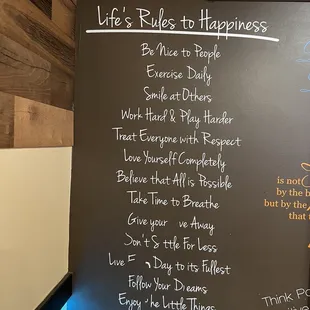 Life's Rules to Happiness
Be Nice to People
Exercise Daily
Smile at Others
Work Hard & Play Harder
Treat Everyone with Respect
Love Yourself Completely
Believe that All is Possible
Take Time to Breathe
Give your ve Away
Don't S ttle For Less
Live E y Day to its Fullest
Follow Your Dreams
Enjoy the Little Things
is not
by the b
but by the
that t
Think Po